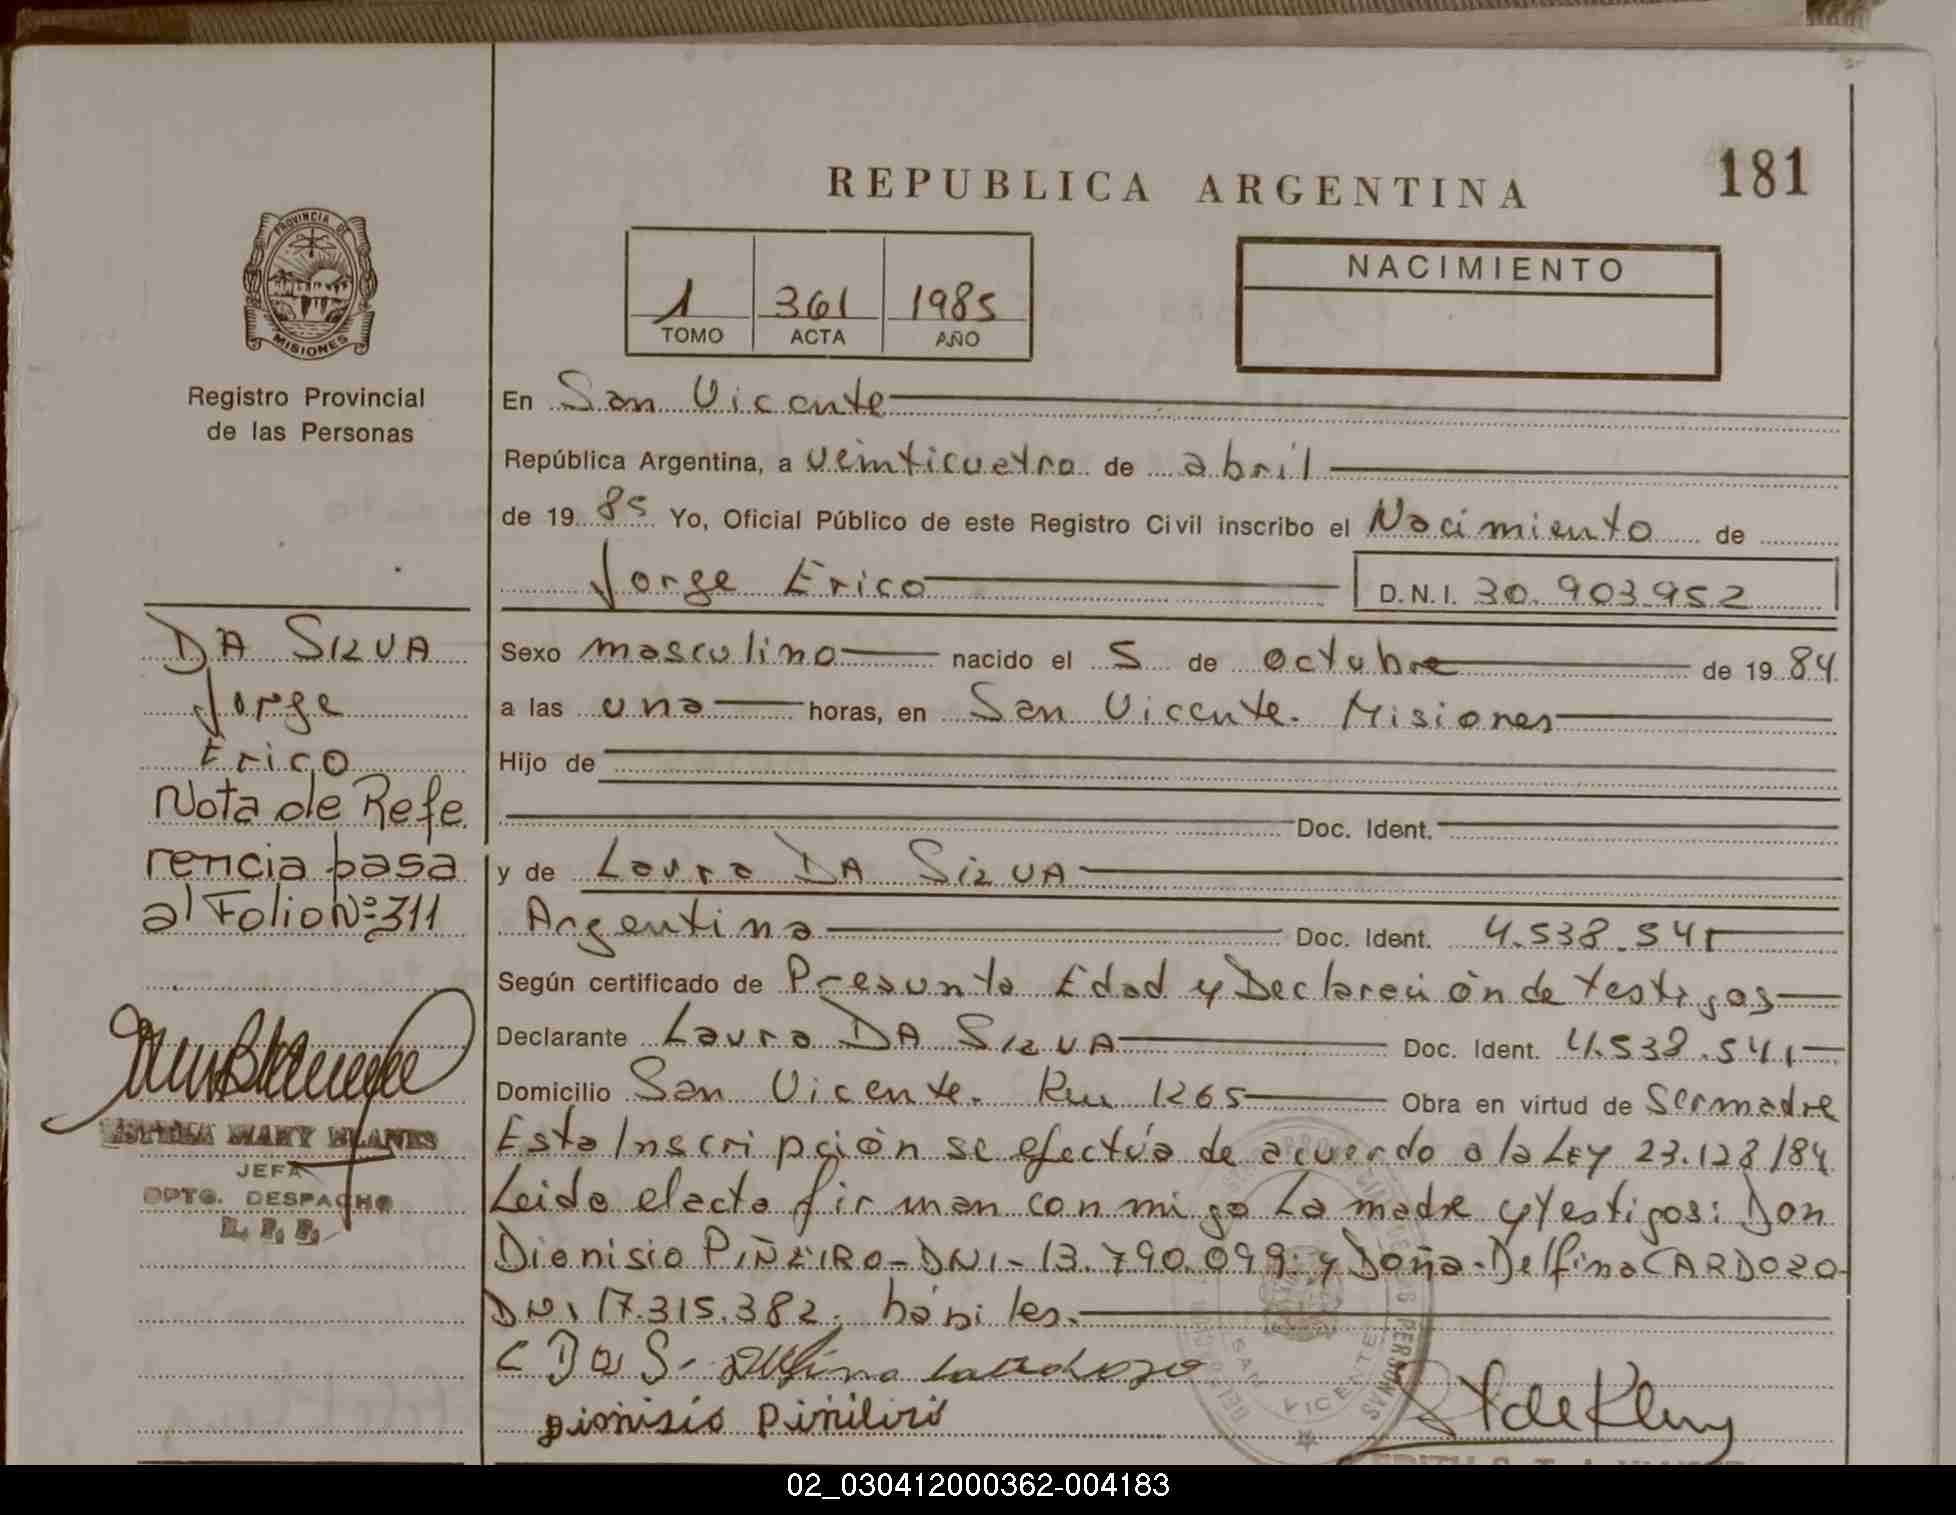 REPUBLICA ARGENTINA
181
PROVINCIA DE
MISIONES
Registro Provincial
de las Personas
1 361 1985
TOMO ACTA AÑO
NACIMIENTO
En San Vicente
República Argentina, a veinticuatro de abril
de 19 85 Yo, Oficial Público de este Registro Civil inscribo el Nacimiento de
Jorge Erico D.N.I. 30.903.952
Sexo masculino nacido el 5 de octubre de 19 84
a las una horas, en San Vicente. Misiones
Hijo de
Doc. Ident.
y de Laura DA SILVA
Argentina Doc. Ident. 4.538.541
Según certificado de Presunta Edad y Declaración de testigos
Declarante Laura DA SILVA Doc. Ident. 4.538.541
Domicilio San Vicente. Km 1265 Obra en virtud de Ser madre
Esta Inscripción se efectúa de acuerdo a la LEY 23.128/84
Leida el acta firman conmigo La madre y testigos: Don
Dionisio PIÑEIRO-DNI-13.790.099: y Doña-Delfina CARDOZO-
DNI 17.315.382. hábiles.
DA SILVA
Jorge
Erico
Nota de Refe
rencia pasa
al Folio Nº 311
MARY
JEFA
DPTO. DESPACHO
R. P. P.
LDaS- Delfina Cardozo
SAN VICENTE
02_030412000362-004183